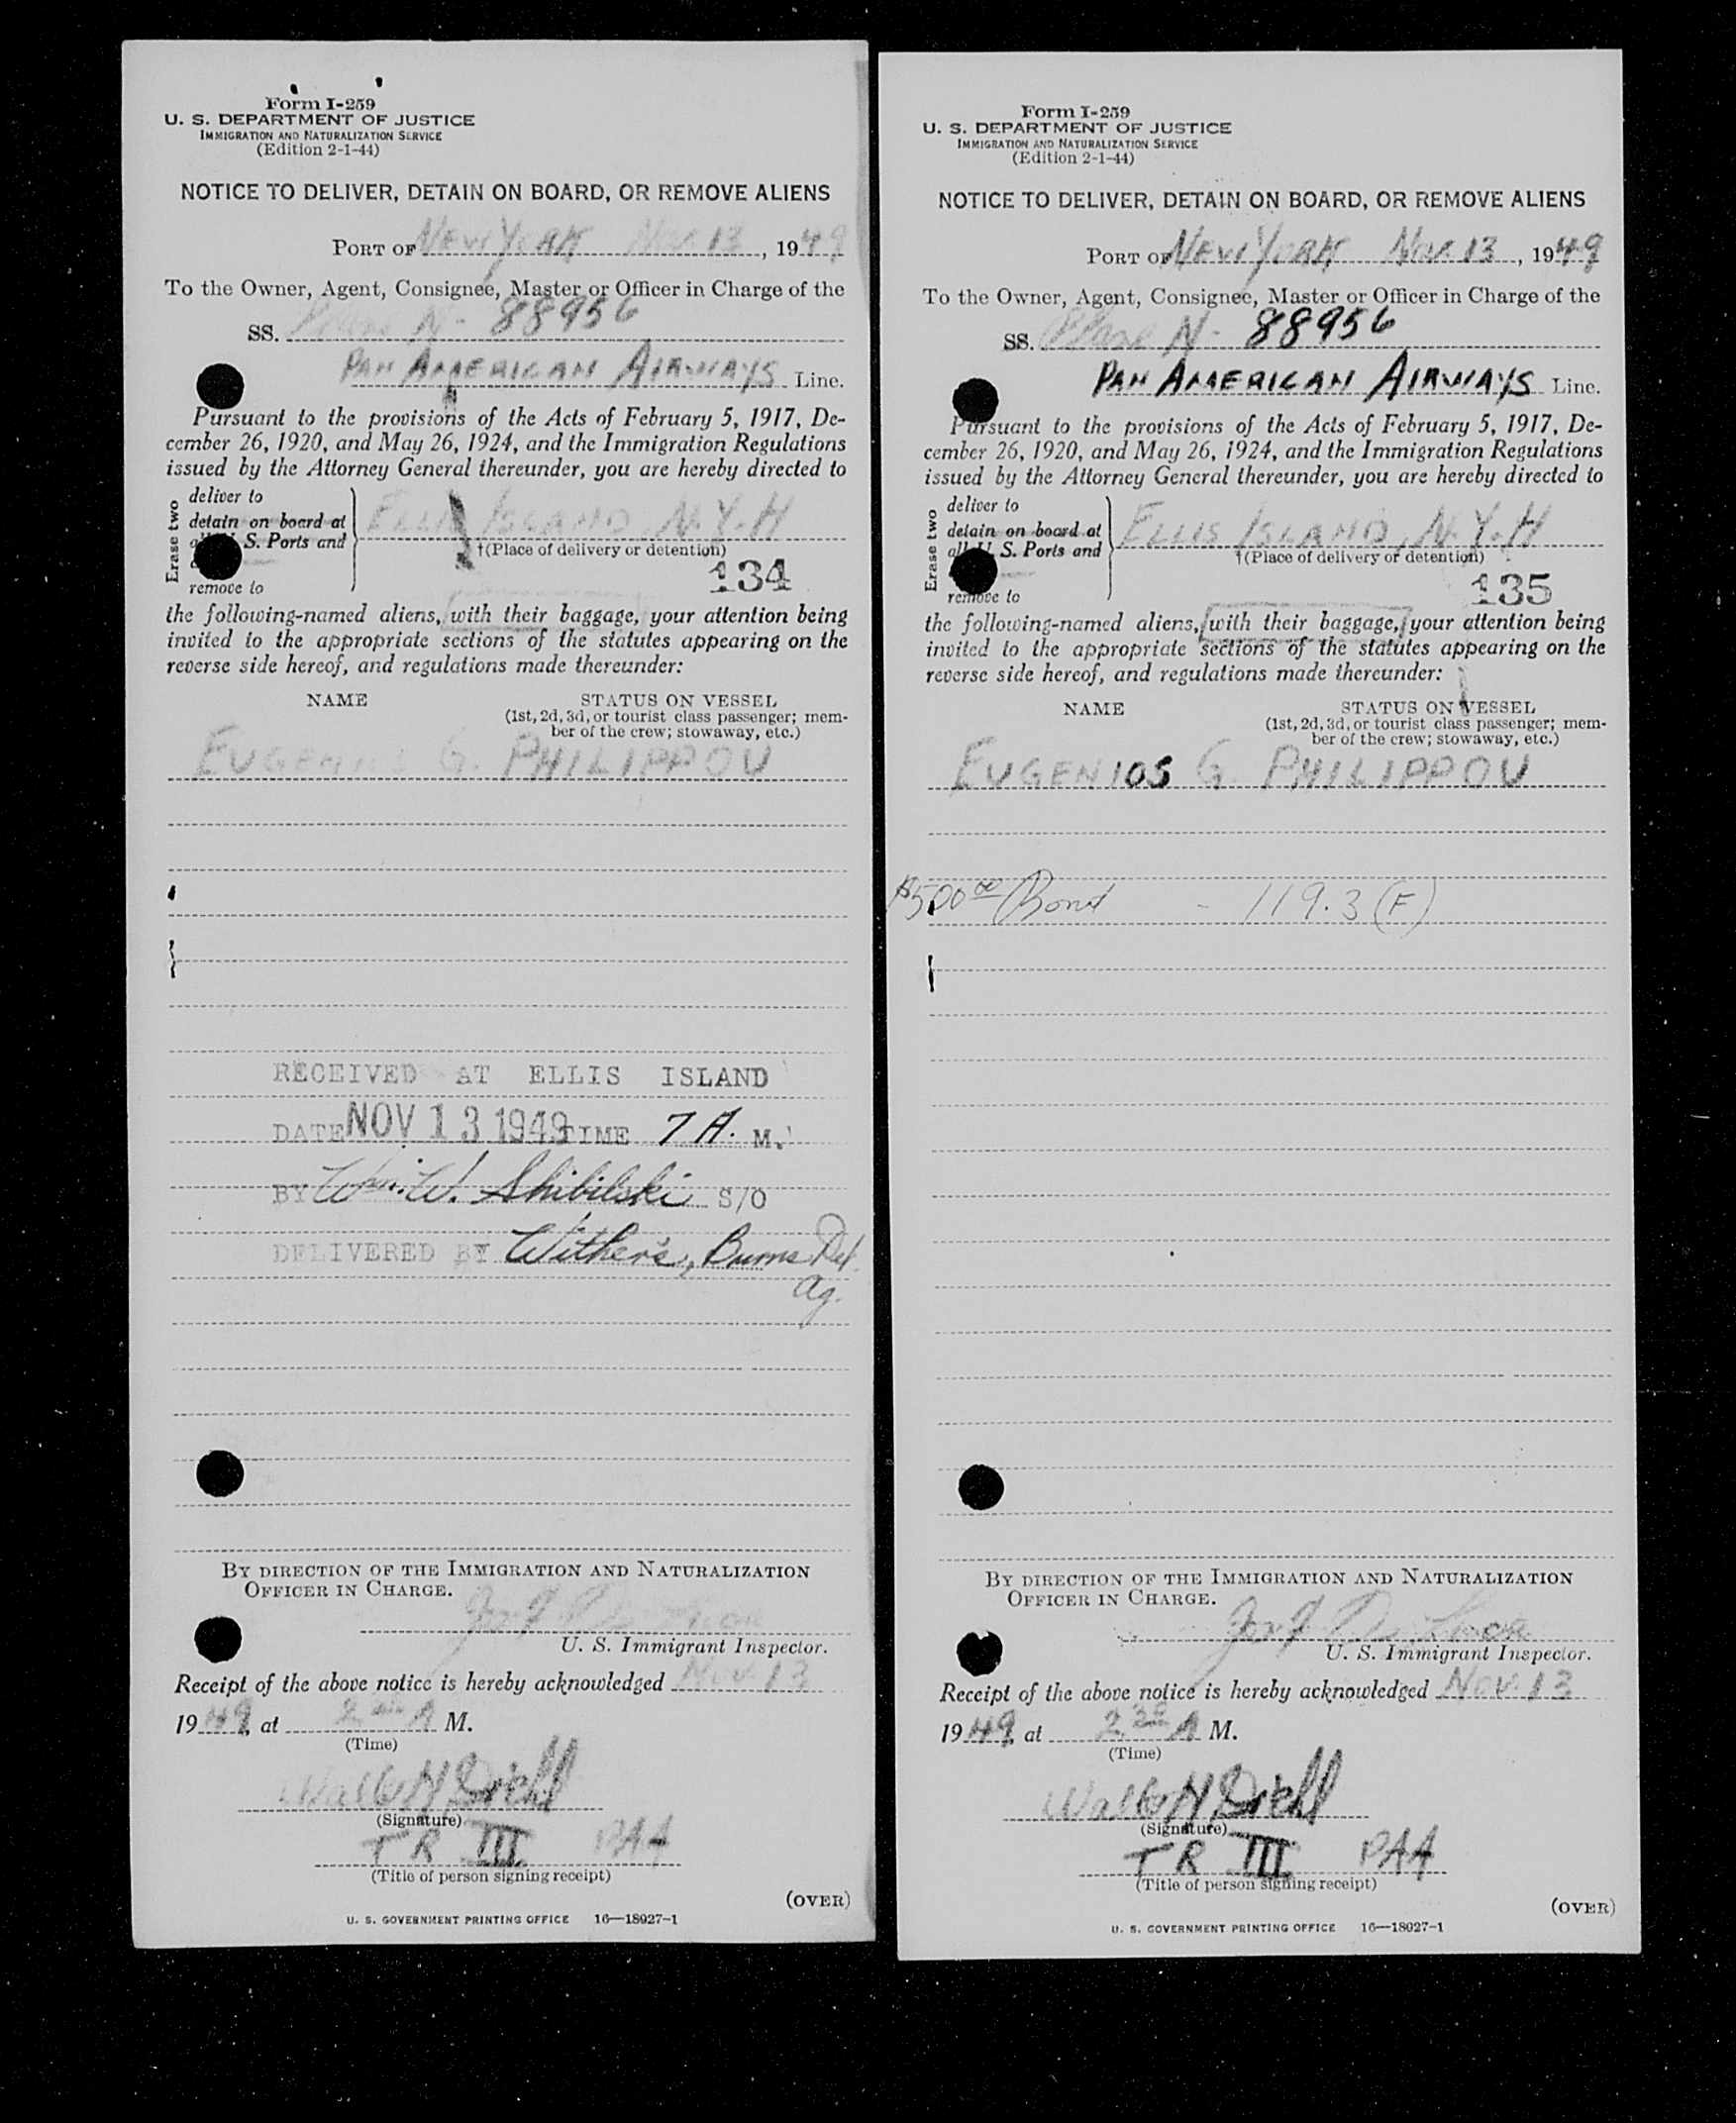 Form I-259
U. S. DEPARTMENT OF JUSTICE
IMMIGRATION AND NATURALIZATION SERVICE
(Edition 2-1-44)
NOTICE TO DELIVER, DETAIN ON BOARD, OR REMOVE ALIENS
PORT OF NEW YORK Nov. 13, 1949
To the Owner, Agent, Consignee, Master or Officer in Charge of the
SS. Plane N- 88956
PAN AMERICAN AIRWAYS Line.
Pursuant to the provisions of the Acts of February 5, 1917, De-
cember 26, 1920, and May 26, 1924, and the Immigration Regulations
issued by the Attorney General thereunder, you are hereby directed to
Erase two
deliver to
detain on board at
all U. S. Ports and
remove to
ELLIS ISLAND, N.Y.H
†(Place of delivery or detention)
134
the following-named aliens, with their baggage, your attention being
invited to the appropriate sections of the statutes appearing on the
reverse side hereof, and regulations made thereunder:
NAME
STATUS ON VESSEL
(1st, 2d, 3d, or tourist class passenger; mem-
ber of the crew; stowaway, etc.)
EUGENIOS G. PHILIPPOU
RECEIVED AT ELLIS ISLAND
DATE NOV 13 1949 TIME 7 A. M.
BY Wm. W. Shibilski S/O
DELIVERED BY Withers, Burns Det.
Ag.
BY DIRECTION OF THE IMMIGRATION AND NATURALIZATION
OFFICER IN CHARGE.
U. S. Immigrant Inspector.
Receipt of the above notice is hereby acknowledged Nov. 13
1949, at 2 30 A M.
(Time)
Walter H Diehl
(Signature)
TR III PAA
(Title of person signing receipt)
(OVER)
U. S. GOVERNMENT PRINTING OFFICE 16—18027-1
Form I-259
U. S. DEPARTMENT OF JUSTICE
IMMIGRATION AND NATURALIZATION SERVICE
(Edition 2-1-44)
NOTICE TO DELIVER, DETAIN ON BOARD, OR REMOVE ALIENS
PORT OF NEW YORK Nov. 13, 1949
To the Owner, Agent, Consignee, Master or Officer in Charge of the
SS. Plane N- 88956
PAN AMERICAN AIRWAYS Line.
Pursuant to the provisions of the Acts of February 5, 1917, De-
cember 26, 1920, and May 26, 1924, and the Immigration Regulations
issued by the Attorney General thereunder, you are hereby directed to
Erase two
deliver to
detain on board at
all U. S. Ports and
remove to
ELLIS ISLAND, N.Y.H
†(Place of delivery or detention)
135
the following-named aliens, with their baggage, your attention being
invited to the appropriate sections of the statutes appearing on the
reverse side hereof, and regulations made thereunder:
NAME
STATUS ON VESSEL
(1st, 2d, 3d, or tourist class passenger; mem-
ber of the crew; stowaway, etc.)
EUGENIOS G. PHILIPPOU
$500 00 Bond - 119.3 (F)
BY DIRECTION OF THE IMMIGRATION AND NATURALIZATION
OFFICER IN CHARGE.
U. S. Immigrant Inspector.
Receipt of the above notice is hereby acknowledged Nov. 13
1949, at 2 30 A M.
(Time)
Walter H Diehl
(Signature)
TR III PAA
(Title of person signing receipt)
(OVER)
U. S. GOVERNMENT PRINTING OFFICE 16—18027-1